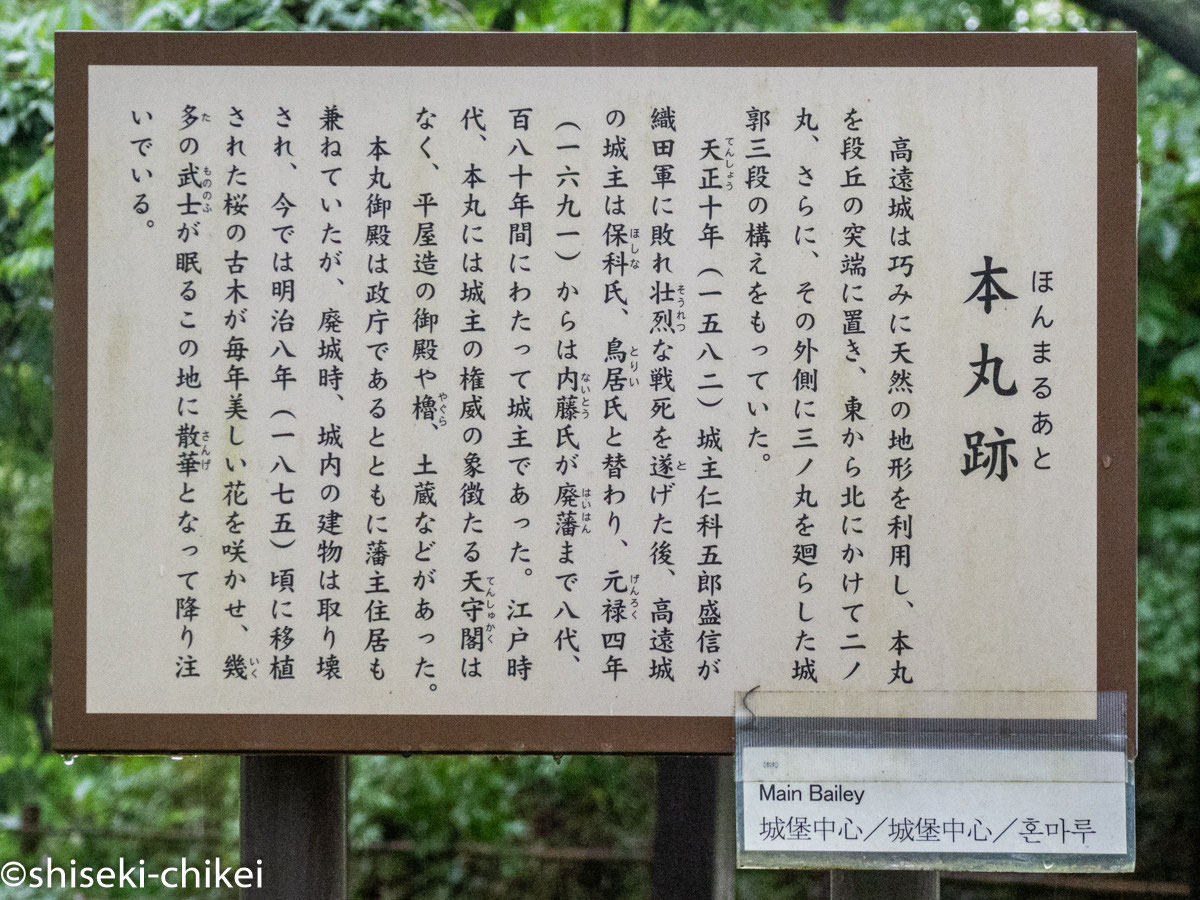 ほんまるあと
本丸跡
高遠城は巧みに天然の地形を利用し、本丸
を段丘の突端に置き、東から北にかけて二ノ
丸、さらに、その外側に三ノ丸を廻らした城
郭三段の構えをもっていた。
天正十年（一五八二）城主仁科五郎盛信が
てんしょう
織田軍に敗れ壮烈な戦死を遂げた後、高遠城
そうれつ
と
の城主は保科氏、鳥居氏と替わり、元禄四年
ほしな
とりい
げんろく
（一六九一）からは内藤氏が廃藩まで八代、
ないとう
はいはん
百八十年間にわたって城主であった。江戸時
代、本丸には城主の権威の象徴たる天守閣は
てんしゅかく
なく、平屋造の御殿や櫓、土蔵などがあった。
やぐら
本丸御殿は政庁であるとともに藩主住居も
兼ねていたが、廃城時、城内の建物は取り壊
され、今では明治八年（一八七五）頃に移植
された桜の古木が毎年美しい花を咲かせ、幾
いく
多の武士が眠るこの地に散華となって降り注
た
もののふ
さんげ
いでいる。
Main Bailey
城堡中心／城堡中心／혼마루
©shiseki-chikei